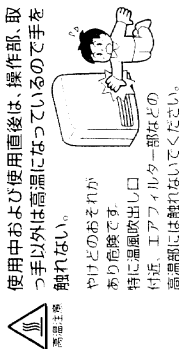 高温注意
使用中および使用直後は、操作部、取
っ手以外は高温になっているので手を
触れない。
やけどのおそれが
あり危険です。
特に温風吹出し口
付近、エアフィルター部などの
高温部には触れないでください。